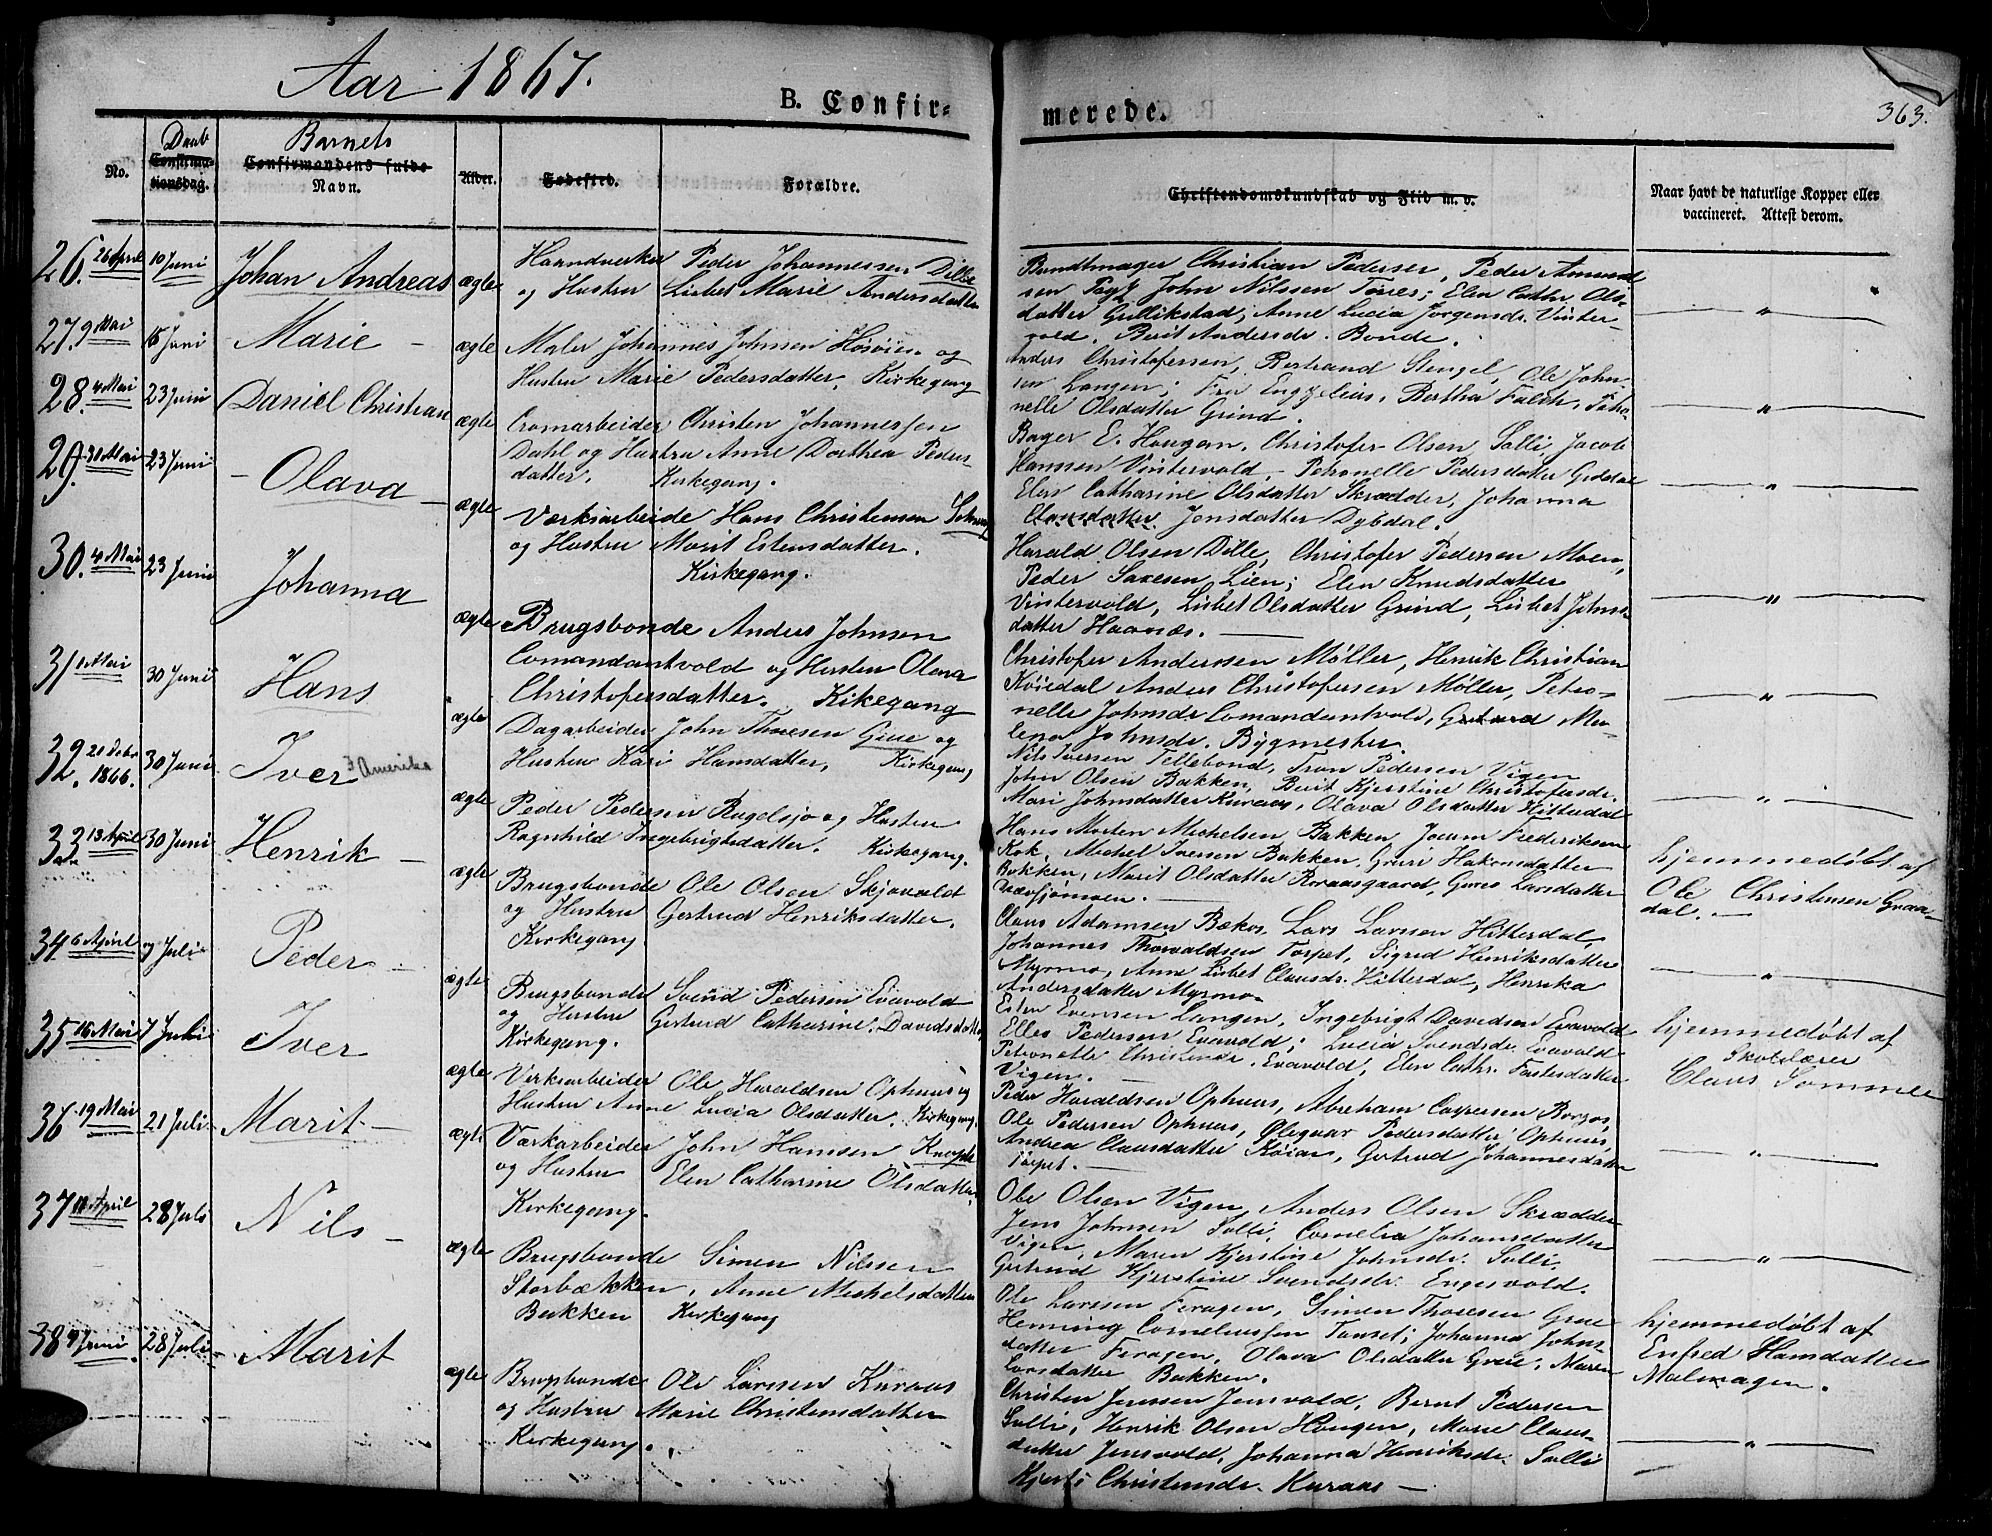 Aar 1867.
B. Confir=
merede.
363.
No.
Daab
Confirma=
tionsdag.
Barnets
Confirmandens fulde
Navn.
Alder.
Fødested.
Forældre.
Christendomskundskab og Flid m. v.
Naar havt de naturlige Kopper eller
vaccineret. Attest derom.
26. 26 April 10 Juni Johan Andreas ægte
Haandverker Peder Johannessen Dille
og Hustru Lisbet Marie Andersdatter
Bundtmager Christian Pedersen, Peder Amund
sen John Nilssen Torres; Elen Cathr. Ols
datter Gullikstad, Anne Lucia Jørgensdr. Vinter-
vold, Berit Andersdr. Bonde.
27. 9 Mai 15 Juni Marie - ægte
Maler Johannes Johnsen Høsøien og
Hustru Marie Pedersdatter, Kirkegang
Anders Christofersen, Bertrand Stengel, Ole John
sen Langen; Fru Engzelius, Bertha Falch, Petro
nelle Olsdatter Grind.
28. 4 Mai 23 Juni Daniel Christian ægte
Cromarbeider Christen Johannessen
Dahl og Hustru Anne Dorthea Peders-
datter. Kirkegang.
Bager E. Hougan, Christofer Olsen Solli, Jacob
Hanssen Vintervold - Petronelle Pedersdatter
Elen Catharine Olsdatter Skrædder, Johanna
Clausdatter Jonsdatter Dybdal.
29. 31 Mai 23 Juni - Olava - ægte
Værksarbeide Hans Christensen
og Hustru Marit Estensdatter.
Kirkegang.
Harald Olsen Dille, Christofer Pedersen Moen,
Peder Saxesen Lien; Elen Knudsdatter
Vintervold, Lisbet Olsdatter Grind, Lisbet Johns
datter Haanæs.
30. 4 Mai 23 Juni Johanna ægte
Brugsbonde Anders Johnsen
Comandantvold og Hustru Olava
Christofersdatter. Kikegang
Christofer Anderssen Møller, Henrik Christian
Køiedal Anders Christofersen Møller, Petro-
nelle Johnsdr Comandantvold, Gertrud Ma-
lena Johnsdr. Bygmester.
31. 1 Mai 30 Juni Hans ægte
Dagarbeider John Thoresen Giue og
Hustru Kari Hansdatter, Kirkegang
Nils Iversen Tellebond, Tron Pedersen Vigen
John Olsen Bakken, Berit Kjerstine Christofersdr.
Mari Johnsdatter Kuraas, Olava Olsdatter Hitterdal
32. 1866. 30 Juni Iver Amerika ægte
Peder Pedersen Rugelsjø og Hustru
Ragnhild Ingebrigtsdatter. Kirkegang.
Hans Morten Michelsen Bakken, Jocum Frederiksen
Kok, Michel Iversen Bakken, Guri Hakonsdatter
Bakken, Marit Olsdatter Roraasgaard, Goros Larsdatter
hjemmedøbt af
Ole Christensen Graa-
dal.
33 13 April 30 Juni Henrik - ægte
Brugsbonde Ole Olsen Skjovold
og Hustru Gertrud Henriksdatter.
Kirkegang
Claus Adamsen Bækos, Lars Larssen Hitterdal,
Johannes Thorvaldsen Torpet, Sigrid Henriksdatter
Myrmo, Anne Lisbet Clausdr. Hitterdal, Henrika
Andersdatter Myrmo
34 6 April 7 Juli Peder - ægte
Brugsbonde Svend Pedersen Evavold
og Hustru Gertrud Catharine Davidsdatter
Kirkegang.
Esten Evensen Langen, Ingebrigt Davidsen Evavold
Elles Pedersen Evavold; Lucia Svendsdr. Evavold
Petronelle Christensdr. Evavold, Elen Cathr. Fastesdatter
Vigen.
hjemmedøbt af
Skolelærer
Claus Sommer
35 16 Mai 7 Juli Iver ægte
Verksarbeider Ole Haraldsen Ophuus og
Hustru Anne Lucia Olsdatter. Kirkegang.
Peder Haraldsen Ophuus, Abraham Caspersen Borgos,
Ole Pedersen Ophuus, Olegaar Pedersdatter Ophuus,
Andrea Clausdatter Køian, Gertrud Johannesdatter
Torpet.
36 19 Mai 21 Juli Marit - ægte
Værkarbeider John Hansen
og Hustru Elen Catharine Olsdatter
Kirkegang.
Ole Olsen Vigen, Anders Olsen Skrædder
Jens Johnsen Solli, Cornelia Johansdatter
Vigen, Maren Kjerstine Johnsdr. Solli,
Gertrud Kjerstine Svendsdr. Engesvold.
37 11 April 28 Juli Nils - ægte
Brugsbonde Simen Nilssen
Storbækken, Anne Michelsdatter
Bakken Kirkegang
Ole Larssen Feragen, Simen Thoresen Grue
Henning Corneliussen Tamset; Johanna Johns
datter Feragen, Olava Olsdatter Grue, Maren
Larsdatter Bakken.
hjemmedøbt af
Enfred Hansdatter
Malmagen.
38 4 Juni 28 Juli Marit ægte
Brugsbonde Ole Larssen Kuraas
og Hustru Marie Christensdatter
Kirkegang.
Christen Jenssen Jensvold, Bernt Pedersen
Solli, Henrik Olsen Hougen, Marie Claus-
datter Jensvold, Johanna Henriksdr. Solli
Kjersti Christensdr. Kuraas -